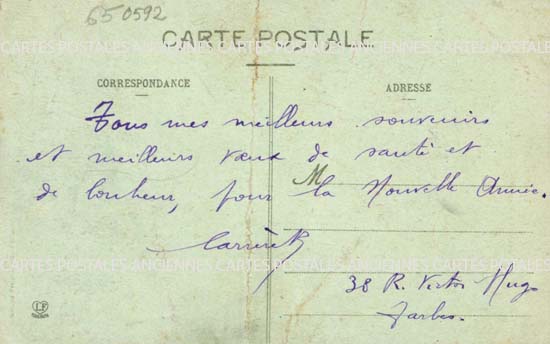 650592
CARTE POSTALE
CARTES POSTALES ANCIENNES CARTES POSTALES ANCIENNES CARTES POSTALES
CORRESPONDANCE
ADRESSE
Tous mes meilleurs souvenirs
et meilleurs vœux de santé et
de bonheur, pour la Nouvelle Année.
M
CARTES POSTALES ANCIENNES CARTES POSTALES ANCIENNES CARTES POSTALES
38 R. Victor Hugo
Tarbes.